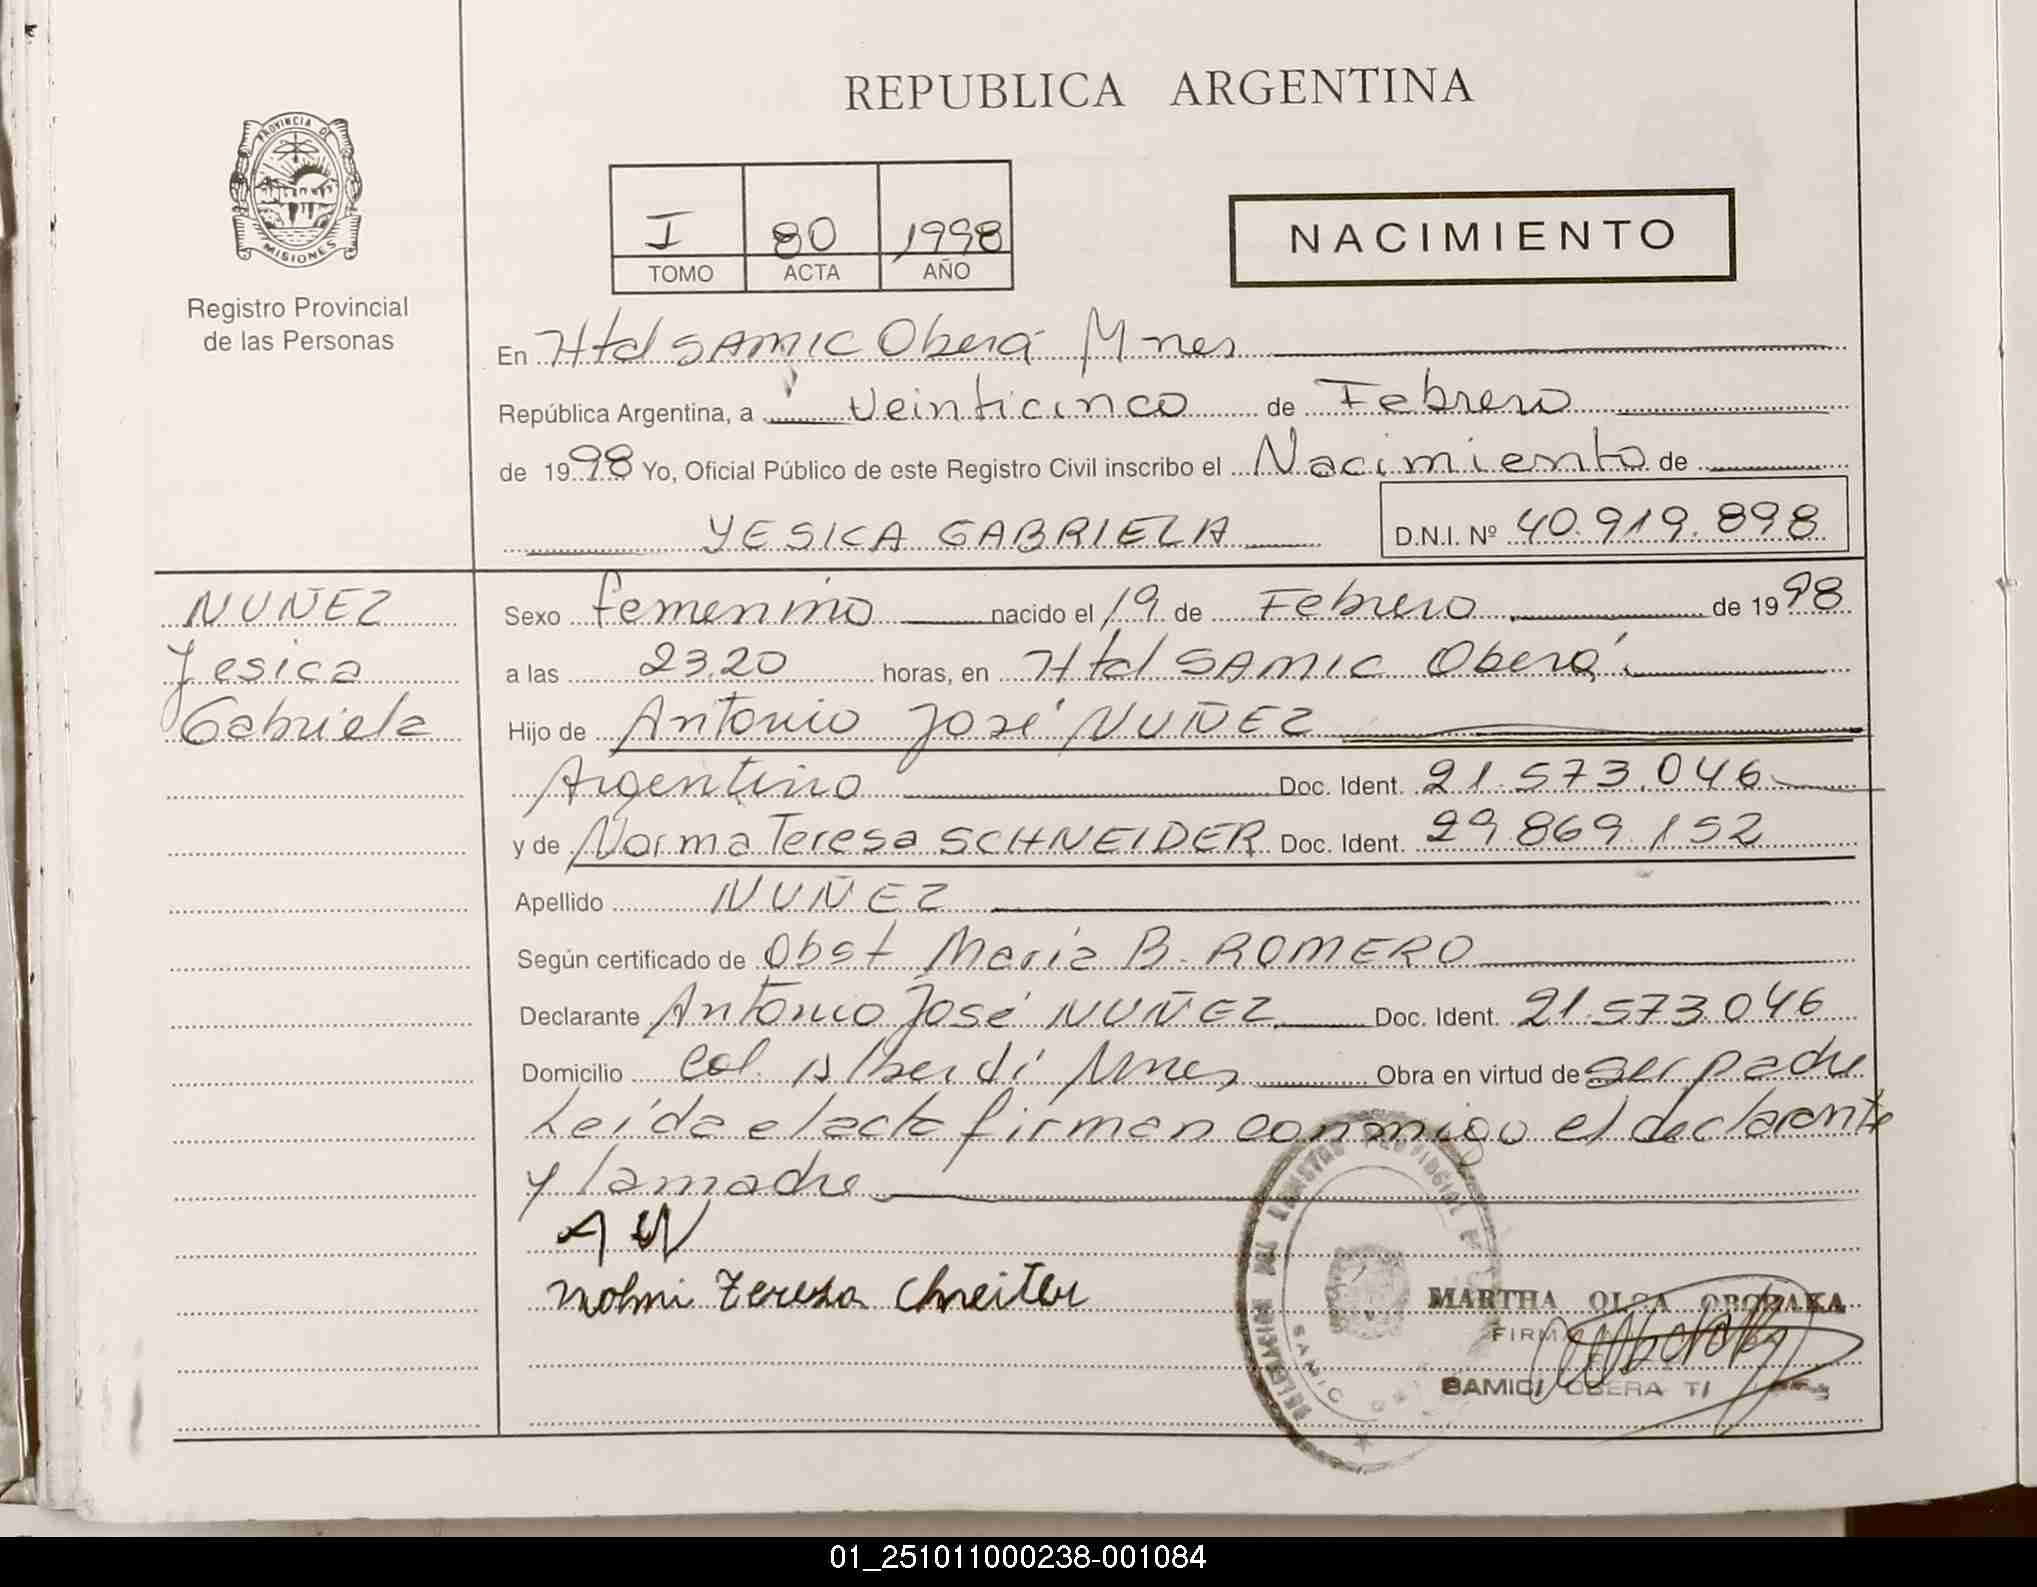 REPUBLICA ARGENTINA
PROVINCIA DE
MISIONES
Registro Provincial
de las Personas
I 80 1998
TOMO ACTA AÑO
NACIMIENTO
En Htal SAMIC Oberá Mnes
República Argentina, a veinticinco de Febrero
de 1998 Yo, Oficial Público de este Registro Civil inscribo el Nacimiento de
YESICA GABRIELA D.N.I. Nº 40.919.898
NUÑEZ
Yesica
Gabriela
Sexo femenino nacido el 19 de Febrero de 1998
a las 23.20 horas, en Htal SAMIC Oberá
Hijo de Antonio José NUÑEZ
Argentino Doc. Ident. 21.573.046
y de Norma Teresa SCHNEIDER Doc. Ident. 29.869.152
Apellido NUÑEZ
Según certificado de Obst Maria B. ROMERO
Declarante Antonio José NUÑEZ Doc. Ident. 21.573.046
Domicilio Col. Alberdi Mnes Obra en virtud de ser padre
Leída el acta firman conmigo el declarante
y la madre
A N
Nohmi Tereza Chneiter
MARTHA OLGA
SAMIC OBERA
SAMIC
01_251011000238-001084